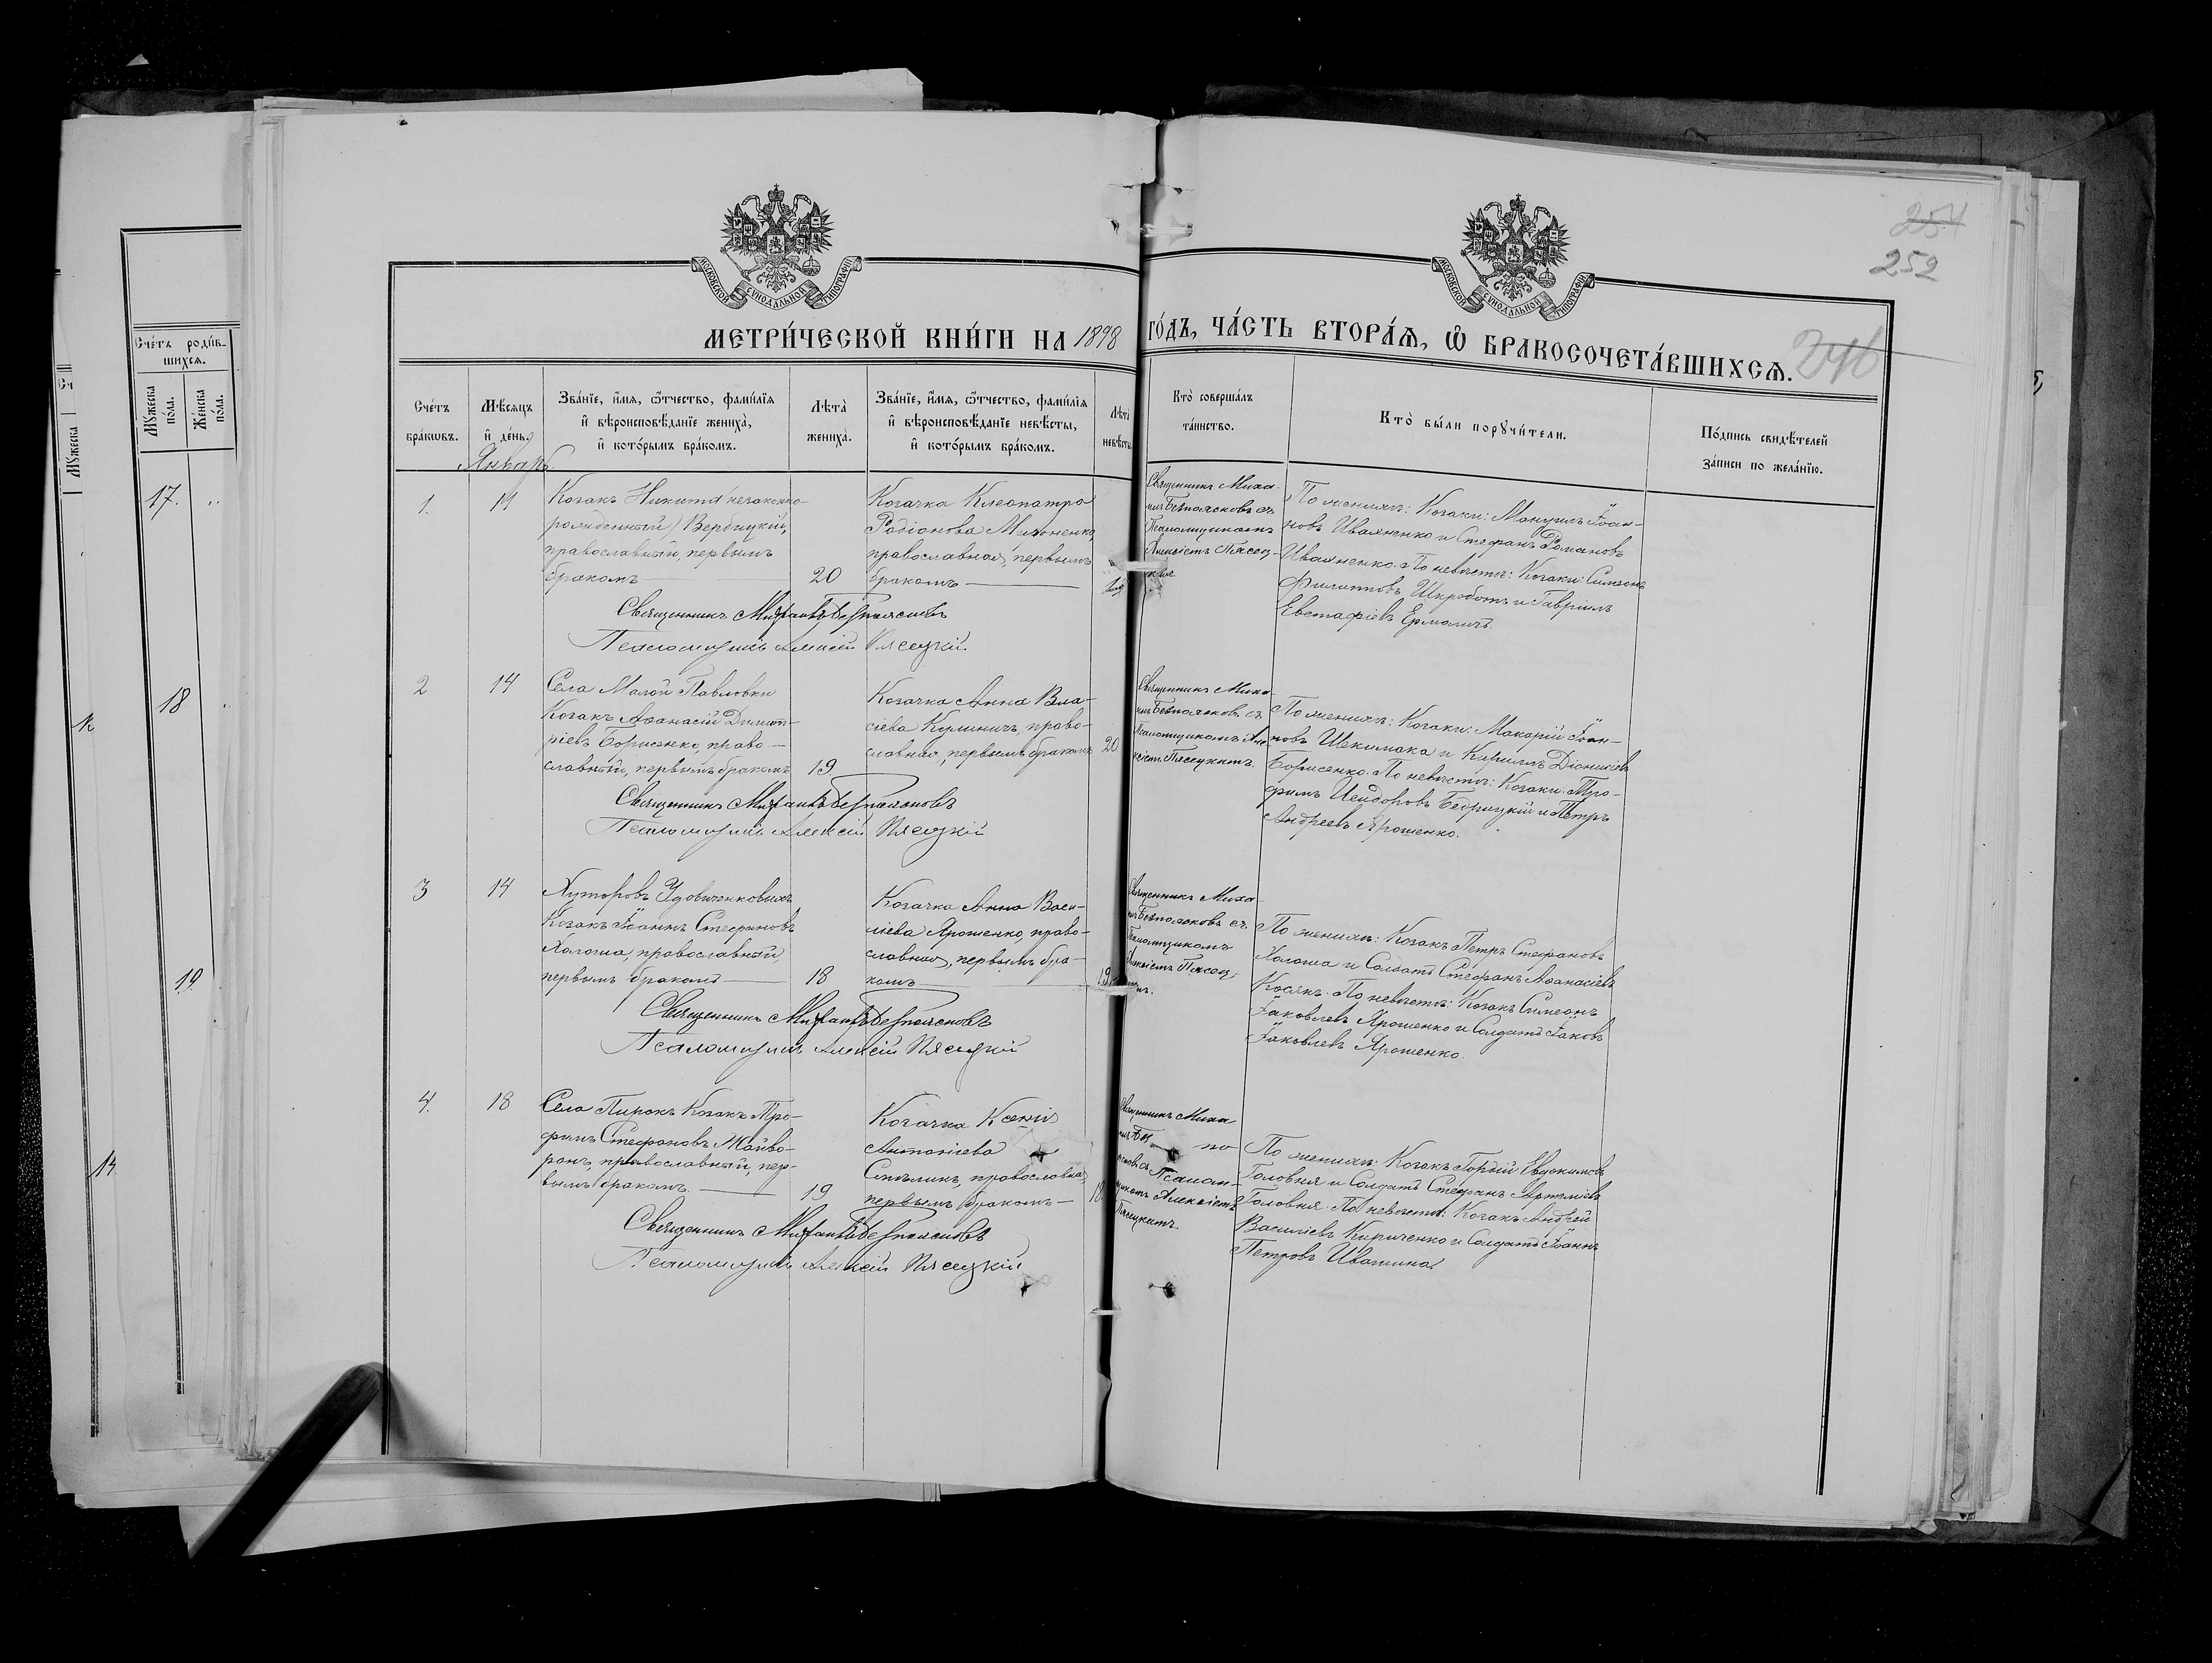 254
252
246
МОСКОВСКОЙ СУНОДАЛЬНОЙ ТИПОГРАФІИ
МОСКОВСКОЙ СУНОДАЛЬНОЙ ТИПОГРАФІИ
МЕТРИ́ЧЕСКОЙ КНИ́ГИ НА 1898 ГО́ДЪ, ЧА́СТЬ ВТОРА́Ѧ, Ѽ БРАКОСОЧЕТА́ВШИХСѦ.
Сче́тъ роди́в-
шихсѧ.
Мꙋ́жеска по́ла.
Же́нска по́ла.
Мꙋ́жеска
17.
18
19
14
Сче́тъ
бра́кѡвъ.
Мѣ́сѧцъ
и҆ де́нь.
Январь
Зва́нїе, и҆́мѧ, ѻ҆́тчество, фами́лїѧ
и҆ вѣроисповѣ́данїе жениха̀,
и҆ кото́рымъ бра́комъ.
Лѣта̀
жениха̀.
Зва́нїе, и҆́мѧ, ѻ҆́тчество, фами́лїѧ
и҆ вѣроисповѣ́данїе невѣ́сты,
и҆ кото́рымъ бра́комъ.
Лѣта̀
невѣ́сты
Кто̀ соверша́лъ
та́инство.
Кто̀ бы́ли порꙋчи́тели.
По́дпись свидѣ́телей
за́писи по жела́нїю.
1.
14
Козакъ Никита (незаконно-
рожденный) Вербицкій,
православный, первымъ
бракомъ
20
Козачка Клеопатра
Родіонова Михоненко
православная, первымъ
бракомъ
Священникъ Миха-
илъ Безпоясковъ съ
Псаломщикомъ
Алексіемъ Пясец-
кимъ.
По женихѣ: Козаки: Мануилъ Іоан-
новъ Ивахненко и Стефанъ Романовъ
Ивахненко. По невѣстѣ: Козаки: Симеонъ
Филипповъ Шкроботъ и Гавріилъ
Евстафіевъ Ермоличъ.
Священникъ Михаилъ Безпоясковъ
Псаломщикъ Алексій Пясецкій
2
14
Села Малой Павловки
Козакъ Аѳанасій Димит-
ріевъ Борисенко, право-
славный, первымъ бракомъ
19
Козачка Анна Вла-
сіева Куличъ, право-
славная, первымъ бракомъ
20
Священникъ Миха-
илъ Безпоясковъ съ
Псаломщикомъ Але-
ксіемъ Пясецкимъ.
По женихѣ: Козаки: Макарій Іоан-
новъ Шекимака и Кириллъ Діонисіевъ
Борисенко. По невѣстѣ: Козаки: Тро-
фимъ Исидоровъ Бедрицкій и Петръ
Андреевъ Ярошенко.
Священникъ Михаилъ Безпоясковъ
Псаломщикъ Алексій Пясецкій
3
14
Хуторовъ Удовиченковыхъ
Козакъ Іоаннъ Стефановъ
Халоша, православный,
первымъ бракомъ
18
Козачка Анна Васи-
ліева Ярошенко, право-
славная, первымъ бра-
комъ
19
Священникъ Миха-
илъ Безпоясковъ съ
Псаломщикомъ
Алексіемъ Пясец-
кимъ.
По женихѣ: Козакъ Петръ Стефановъ
Халоша и Солдатъ Стефанъ Аѳанасіевъ
Косякъ. По невѣстѣ: Козакъ Симеонъ
Іаковлевъ Ярошенко и Солдатъ Іаковъ
Іаковлевъ Ярошенко.
Священникъ Михаилъ Безпоясковъ
Псаломщикъ Алексій Пясецкій
4.
18
Села Пирокъ Козакъ Тро-
фимъ Стефановъ Жайво-
ронъ, православный, пер-
вымъ бракомъ.
19
Козачка Ксенія
Антоніева
православная,
первымъ бракомъ
18
Священникъ Миха-
илъ Безпо-
ясковъ съ Псалом-
щикомъ Алексіемъ
Пясецкимъ
По женихѣ: Козакъ Гордій Евдокимовъ
Головня и Солдатъ Стефанъ Артеміевъ
Головня. По невѣстѣ: Козакъ Андрей
Василіевъ Кириченко и Солдатъ Іоаннъ
Петровъ Ивашина
Священникъ Михаилъ Безпоясковъ
Псаломщикъ Алексій Пясецкій